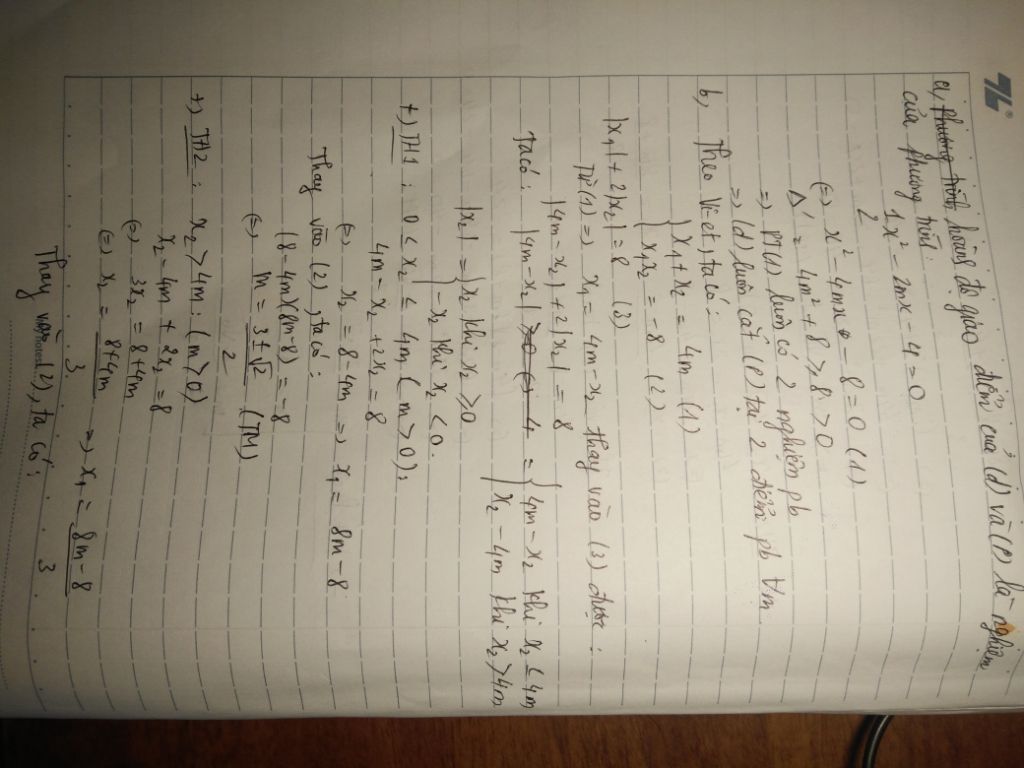 a, phương trình hoành độ giao điểm của (d) và (P) là nghiệm
của phương trình:
1/2 x² - 2mx - 4 = 0
(=) x² - 4mx - 8 = 0 (1)
Δ' = 4m² + 8 ≥ 8 > 0
=> PT(1) luôn có 2 nghiệm pb
=> (d) luôn cắt (P) tại 2 điểm pb ∀m
b, Theo Vi-et, ta có:
{ x₁ + x₂ = 4m (1)
{ x₁x₂ = -8 (2)
|x₁| + 2|x₂| = 8 (3)
Từ (1) => x₁ = 4m - x₂ thay vào (3) được:
|4m - x₂| + 2|x₂| = 8
Ta có: |4m - x₂| = { 4m - x₂ khi x₂ ≤ 4m
{ x₂ - 4m khi x₂ > 4m
|x₂| = { x₂ khi x₂ ≥ 0
{ - x₂ khi x₂ < 0.
+) TH1: 0 ≤ x₂ ≤ 4m (m > 0):
4m - x₂ + 2x₂ = 8
(=) x₂ = 8 - 4m => x₁ = 8m - 8
Thay vào (2), ta có:
(8 - 4m)(8m - 8) = -8
(=) m = (3 ± √2)/2 (TM)
+) TH2: x₂ > 4m: (m > 0)
x₂ - 4m + 2x₂ = 8
(=) 3x₂ = 8 + 4m
(=) x₂ = (8 + 4m)/3 => x₁ = (8m - 8)/3
Thay vào (2), ta có: